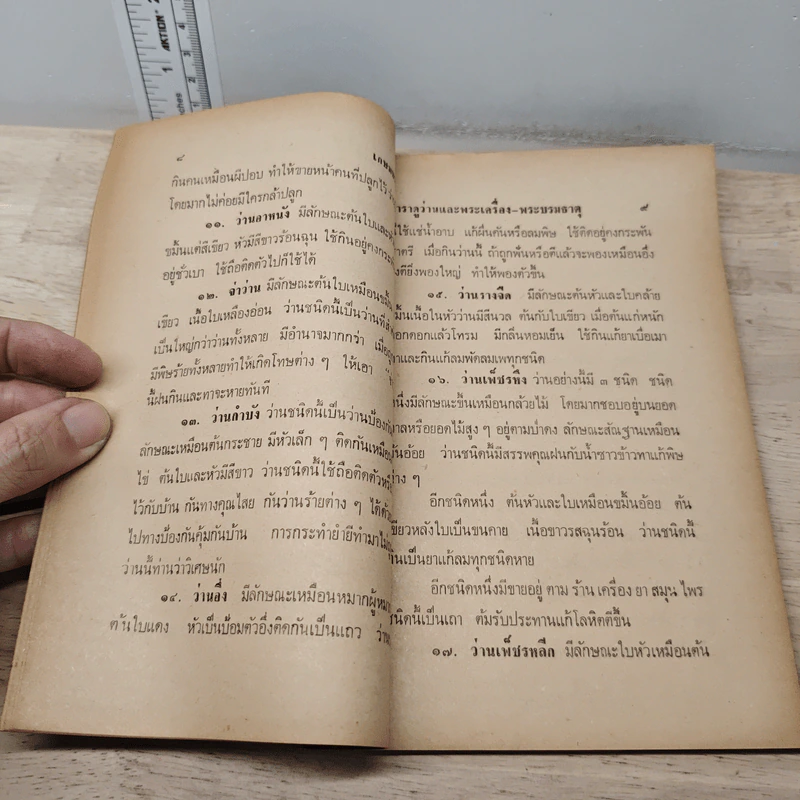 AKTION
inches
๘
กินคนเหมือนผีปอบ ทำให้ขายหน้าคนที่ปลูกไว้
โดยมากไม่ค่อยมีใครกล้าปลูก
๑๑. ว่านอาหนัง มีลักษณะต้นใบและ
ขมิ้นแต่สีเขียว หัวมีสีขาวร้อนฉุน ใช้กินอยู่คงกระ
อยู่ชั่วเบา ใช้ถือติดตัวไปก็ใช้ได้
๑๒. จ่าว่าน มีลักษณะต้นใบเหมือนขมิ้น
เขียว เนื้อใบเหลืองอ่อน ว่านชนิดนี้เป็นว่านที่
เป็นใหญ่กว่าว่านทั้งหลาย มีอำนาจมากกว่า เมื่อ
มีพิษร้ายทั้งหลายทำให้เกิดโทษต่าง ๆ ให้เอา
นี้ฝนกินและทาจะหายทันที
๑๓. ว่านกำบัง ว่านชนิดนี้เป็นว่านป้องกัน
ลักษณะเหมือนต้นกระชาย มีหัวเล็ก ๆ ติดกันเหมือน
ไข่ ต้นใบและหัวมีสีขาว ว่านชนิดนี้ใช้ถือติดตัว
ไว้กับบ้าน กันทางคุณไสย กันว่านร้ายต่าง ๆ ได้
ไปทางป้องกันคุ้มกันบ้าน การกระทำย่ำยีทำมาไม่
ว่านนี้ท่านว่าวิเศษนัก
๑๔. ว่านอึ่ง มีลักษณะเหมือนหมากผู้
ต้นใบแดง หัวเป็นป้อมตัวอึ่งติดกันเป็นแถว
ตำราดูว่านและพระเครื่อง–พระบรมธาตุ ๙
ใช้แช่น้ำอาบ แก้ผื่นคันหรือลมพิษ ใช้ติดอยู่คงกระพัน
เมื่อกินว่านนี้ ถ้าถูกฟันหรือตีแล้วจะพองเหมือนอึ่ง
ตียิ่งพองใหญ่ ทำให้พองตัวขึ้น
๑๕. ว่านรางจืด มีลักษณะต้นหัวและใบคล้าย
ขมิ้นเนื้อในหัวว่านมีสีนวล ต้นกับใบเขียว เมื่อต้นแก่หนัก
ออกดอกแล้วโทรม มีกลิ่นหอมเย็น ใช้กินแก้ยาเบื่อเมา
ทาและกินแก้ลมพัดลมเพทุกชนิด
๑๖. ว่านเพ็ชรหึง ว่านอย่างนี้มี ๓ ชนิด ชนิด
หนึ่งมีลักษณะขึ้นเหมือนกล้วยไม้ โดยมากชอบอยู่บนยอด
ตาลหรือยอดไม้สูง ๆ อยู่ตามป่าดง ลักษณะสัณฐานเหมือน
ต้นอ้อย ว่านชนิดนี้มีสรรพคุณฝนกับน้ำซาวข้าวทาแก้พิษ
ต่าง ๆ
อีกชนิดหนึ่ง ต้นหัวและใบเหมือนขมิ้นอ้อย ต้น
เขียวหลังใบเป็นขนคาย เนื้อขาวรสฉุนร้อน ว่านชนิดนี้
กินเป็นยาแก้ลมทุกชนิดหาย
อีกชนิดหนึ่งมีขายอยู่ ตาม ร้าน เครื่อง ยา สมุน ไพร
ชนิดนี้เป็นเถา ต้มรับประทานแก้โลหิตตีขึ้น
๑๗. ว่านเพ็ชรหลีก มีลักษณะใบหัวเหมือนต้น